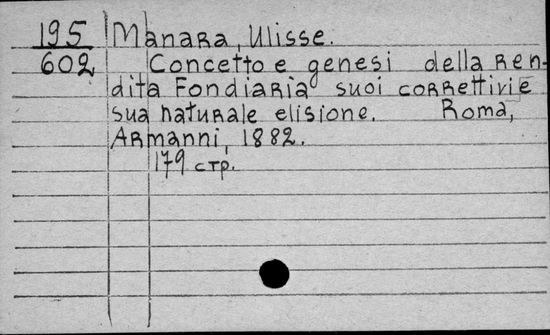 195 Manara, Ulisse.
602 Concetto e genesi della ren-
dita fondiaria suoi correttivi e
sua naturale elisione. Roma,
Armanni, 1882.
179 стр.